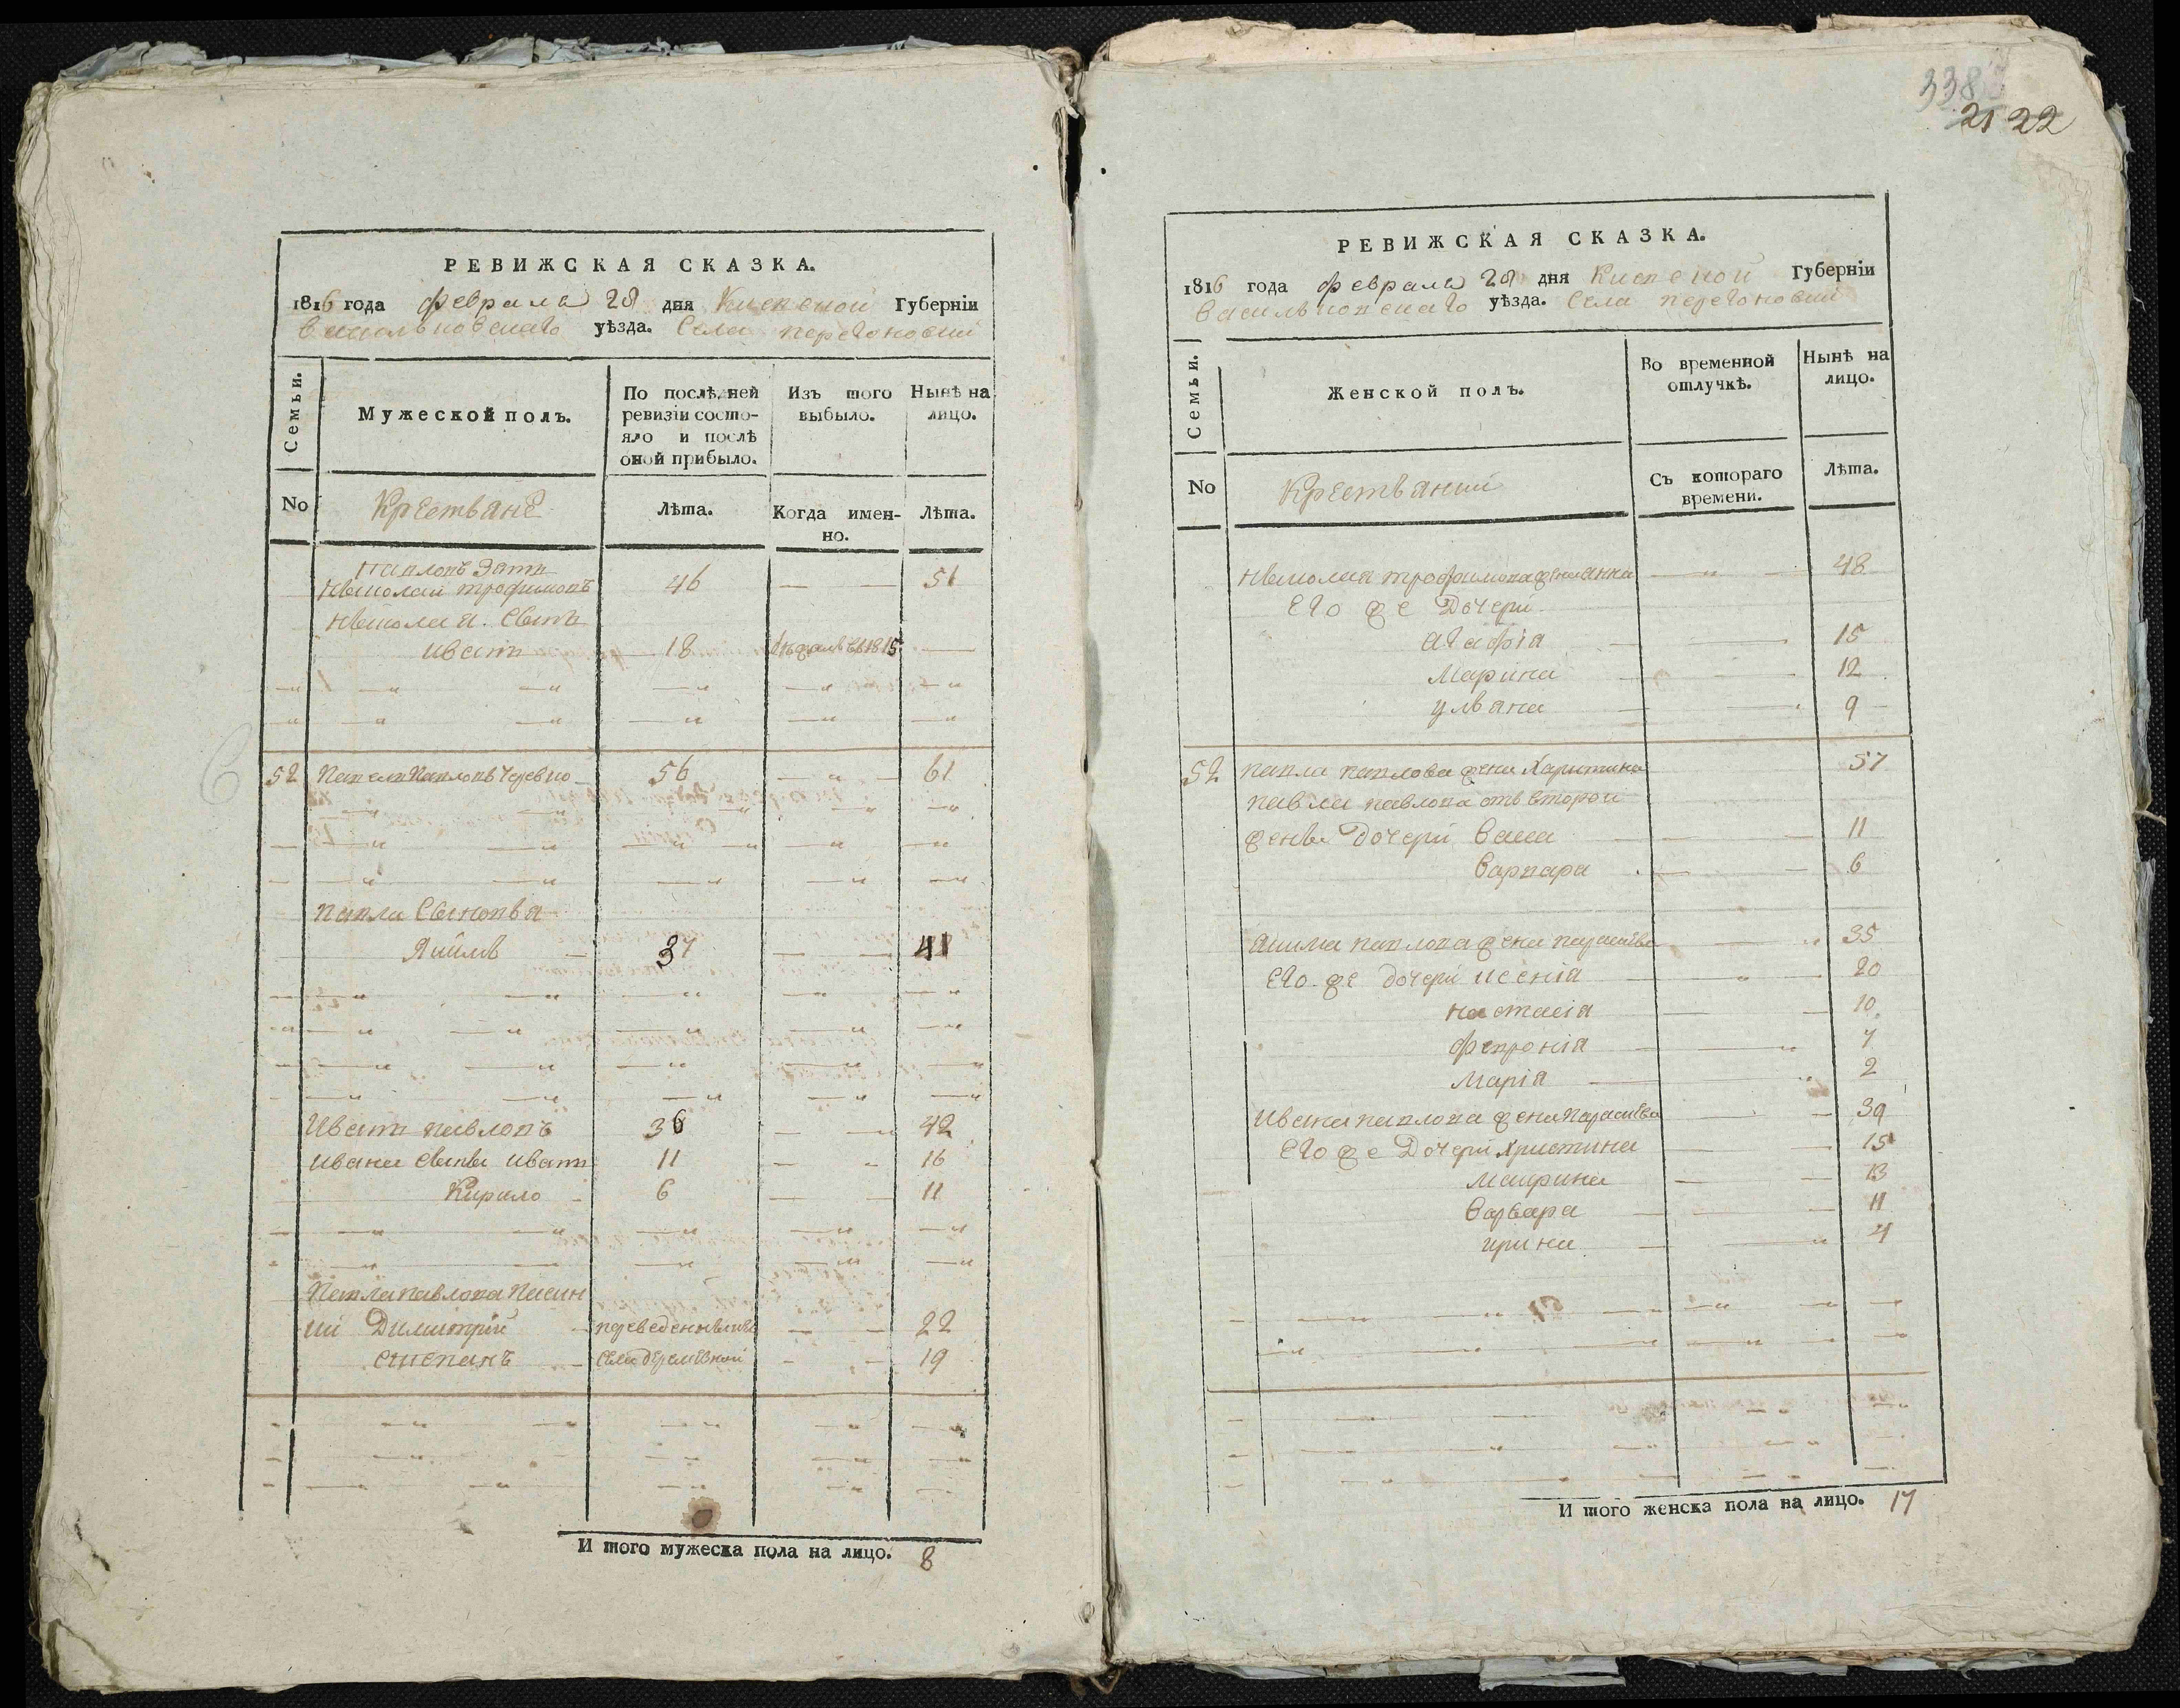 РЕВИЖСКАЯ СКАЗКА.
1816 года февраля 28 дня Киевской Губерніи
Васильковскаго уѣзда. Села перегоновки
Семьи.
Мужеской полъ.
По послѣдней ревизіи состояло и послѣ оной прибыло.
Изъ того выбыло.
Нынѣ на лицо.
No
Крестьяне
Лѣта.
Когда именно.
Лѣта.
павловъ Зять
Николай трофимовъ 46 — — 51
Николая Сынъ
Иванъ 18 1815 —
52 Павелъ Павловъ 56 — " — 61
павла Сыновья
Якимъ — 37 — — 41
Иванъ павловъ 36 — — 42
Ивана Сыны Иванъ 11 — " 16
Кирило — 6 — — 11
Павла павлова Пасын
ки Димитрій — переведены — — 22
Степанъ — Села — — 19
И того мужеска пола на лицо. 8
338
21 22
РЕВИЖСКАЯ СКАЗКА.
1816 года февраля 28 дня Киевской Губерніи
Васильковскаго уѣзда. Села перегоновки
Семьи.
Женской полъ.
Во временной отлучкѣ.
Нынѣ на лицо.
No
Крестьянки
Съ котораго времени.
Лѣта.
Николая трофимова жена анна — " — 48
Его же Дочери
агафія — 15
Марина — 12
ульяна — 9
52 павла павлова жена Харитина 57
павла павлова отъ второй
жены Дочери Васса — — 11
Варвара — — 6
Якима павлова жена параскева — " 35
Его же дочери ксенія — " — 20
настасія — — 10
февронія — " 7
Марія — " 2
Ивана павлова жена Параскева — — 39
Его же Дочери Христина — — 15
Марина — — 13
Варвара — — 11
ирина — " 4
И того женска пола на лицо. 17